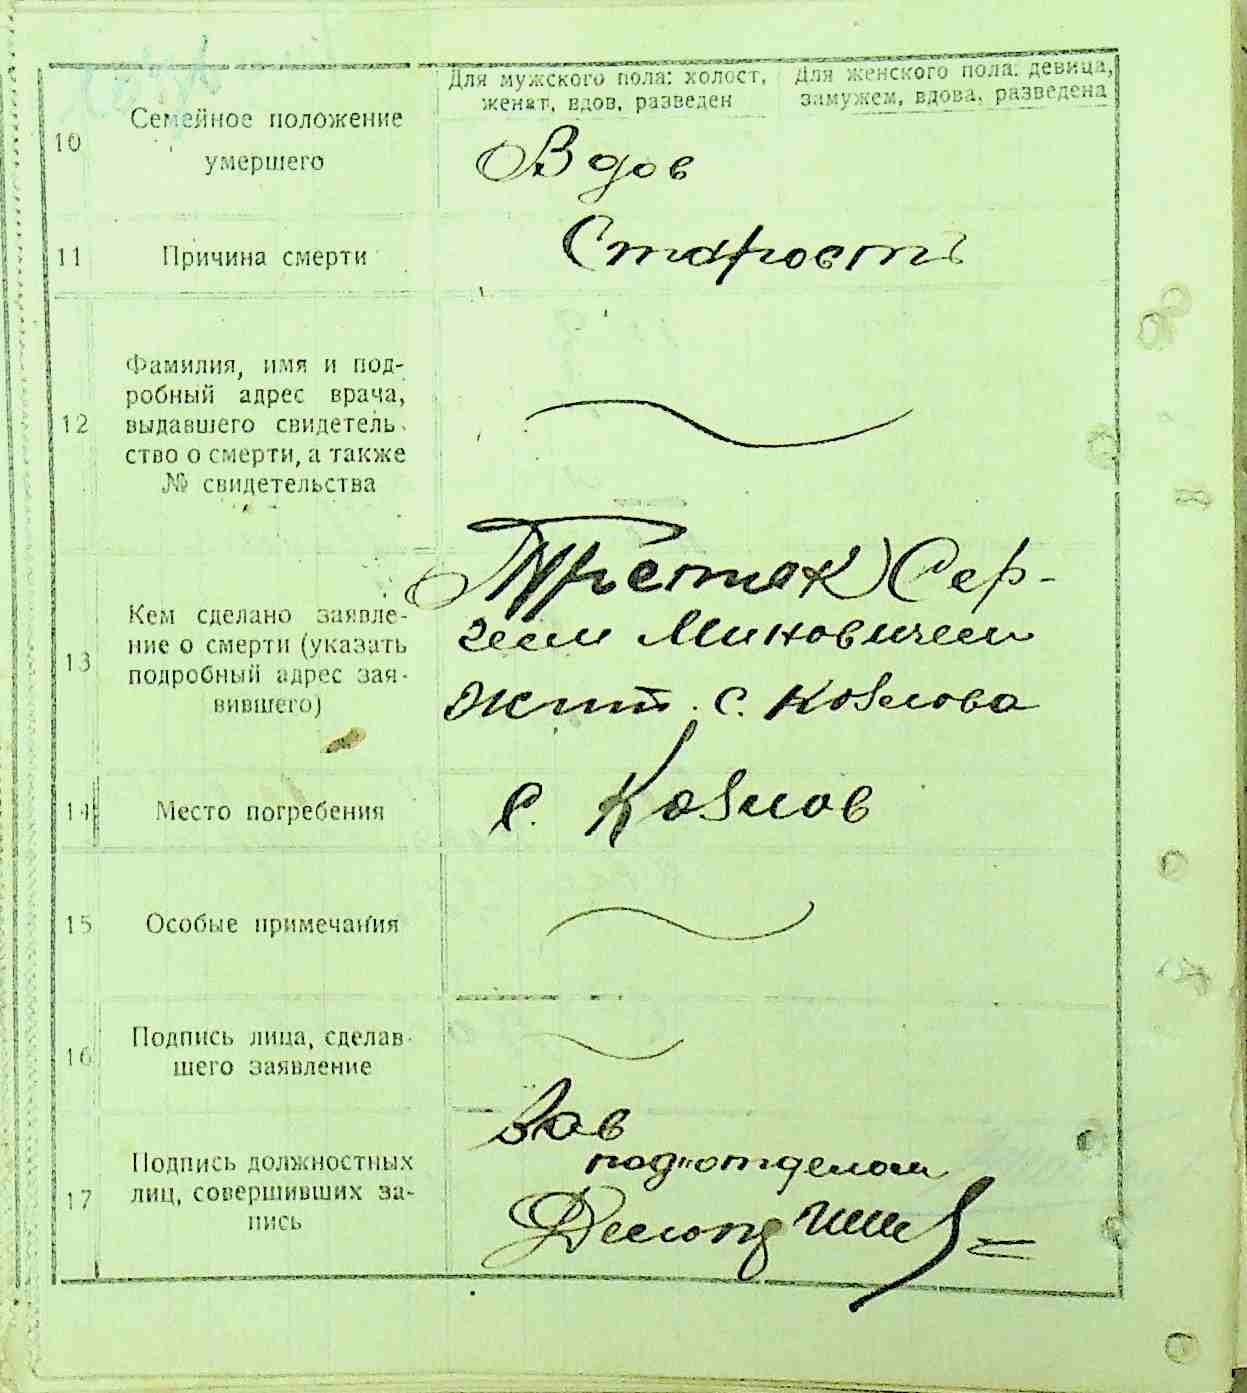 Для мужского пола: холост, женат, вдов, разведен
Для женского пола: девица, замужем, вдова, разведена
10
Семейное положение
умершего
Вдов
11
Причина смерти
Старость
12
Фамилия, имя и под-
робный адрес врача,
выдавшего свидетель-
ство о смерти, а также
№ свидетельства
13
Кем сделано заявле-
ние о смерти (указать
подробный адрес зая-
вившего)
Сер-
геем Миновичем
жит. с. Козлова
14
Место погребения
с. Козлов
15
Особые примечания
16
Подпись лица, сделав-
шего заявление
17
Подпись должностных
лиц, совершивших за-
пись
Зав
подотделом